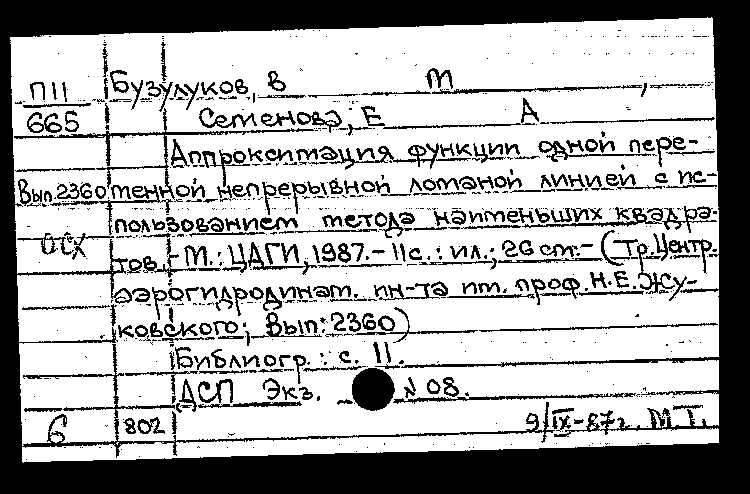 П11 Бузулуков, В М ,
665 Семенова, Е А
Аппроксимация функции одной пере-
Вып.2360 менной непрерывной ломаной линией с ис-
пользованием метода наименьших квадра-
ОСХ тов. - М.: ЦАГИ, 1987. - 11с. : ил.; 26 см. - (Тр. Центр.
аэрогидродинам. ин-та им. проф. Н.Е. Жу-
ковского; Вып: 2360)
Библиогр.: с. 11.
ДСП Экз. №08.
6 802 9/IX-87г. М.Т.